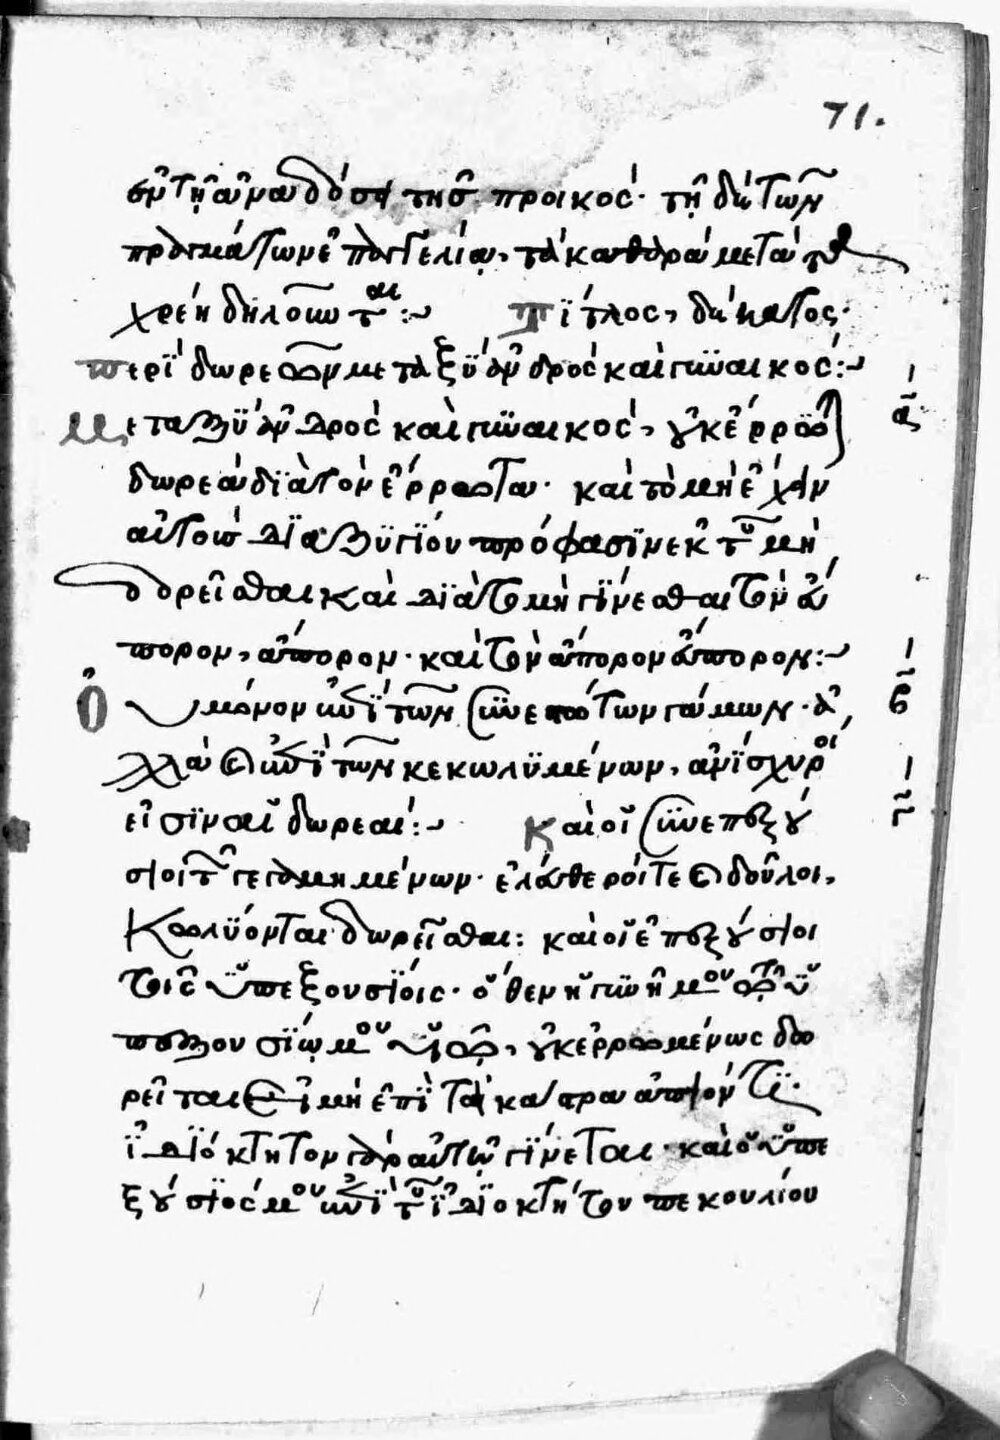 71.
ἐν τῇ ἀναδόσει τῆς προικός· τῇ δὲ τῶν
πραγμάτων ἐπαγγελίᾳ, τὰ καθαρὰ μετὰ τὰ
χρέη δηλοῦται :~ Τίτλος, δέκατος·
περῒ δωρεῶν μεταξῢ ἀνδρὸς καὶ γϋναικός :~
α
Μεταξῢ ἀνδρὸς καὶ γϋναικὸς, οὐκ ἔρρωται
δωρεὰ δϊὰ τὸν ἔρρωτα· καὶ τὸ μὴ ἔχειν
αὐτοὺς δϊαζϋγΐου πρόφασϊν ἐκ τοῦ μὴ
δορεῖσθαι καὶ δϊὰ τὸ μὴ γΐνεσθαι τὸν εὔ
πορον, ἄπορον· καὶ τὸν ἄπορον εὔπορον :~
Οὐ μόνον ἐπῒ τῶν σϋνεστώτων γάμων· ἀλ
β
λὰ καὶ ἐπῒ τῶν κεκωλϋμένων, ἀνΐσχυροί
γ
εἰσϊν αἱ δωρεαί :~ Καὶ οἱ σϋνεπεξού
σιοι τῶν γεγαμημένων· ἐλεύθεροί τε καὶ δοῦλοι,
Κωλϋονται δωρεῖσθαι : καὶ οἱ ἐπεξούσιοι
τοῖς ὑπεξουσΐοις· ὅθεν ἡ γϋνή μου τῷ ὑ
πεξουσΐῳ μου υἱῷ, οὐκ ἐρρωμένως δω
ρεῖται εἰ μὴ ἐπῒ τὰ κάστρα ἀπιόντϊ·
ἰδϊόκτητον γὰρ αὐτῷ γΐνεται· καὶ ὁ ὑπε
ξούσϊός μου ἐπῒ τοῦ ἰδϊοκτήτου πεκουλίου